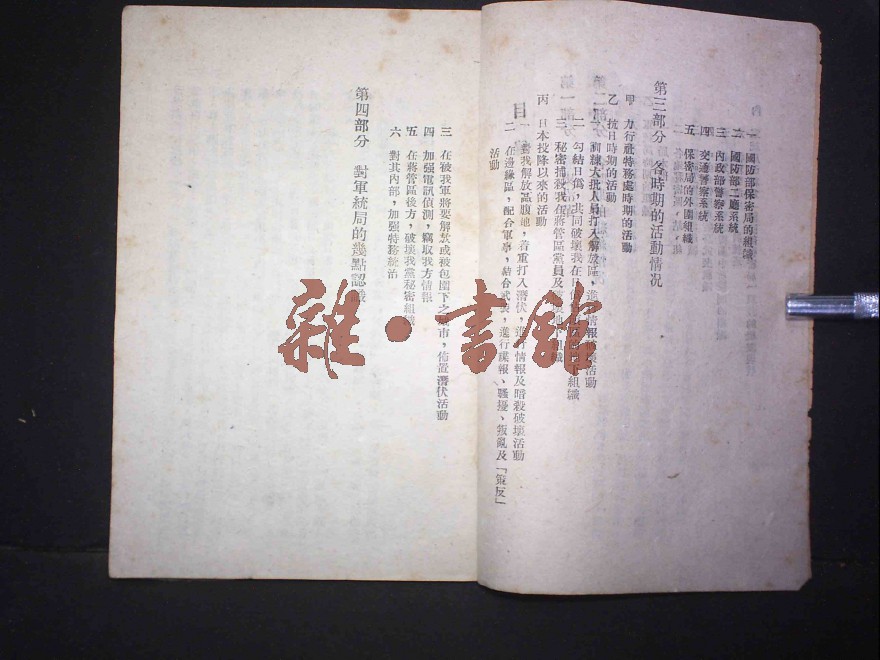 一 國防部保密局的組織
二 國防部二廳系統
三 內政部警察系統
四 交通警察系統
五 保密局的外圍組織
第三部分 各時期的活動情况
甲 力行社特務處時期的活動
乙 抗日時期的活動
一 訓練大批人員打入解放區,進行情報破壞活動
二 勾結日僞,共同破壞我在日組織
三 秘密捕殺我在蔣管區黨員及組織
丙 日本投降以來的活動
一 對我解放區腹地,着重打入潛伏,進行情報及暗殺破壞活動
二 在邊緣區,配合軍事,結合武裝,進行諜報、騷擾、叛亂及「策反」
活動
三 在被我軍將要解放或被包圍下之城市,佈置潛伏活動
四 加强電訊偵測,竊取我方情報
五 在蔣管區後方,破壞我黨秘密組織
六 對其內部,加强特務統治
第四部分 對軍統局的幾點認識
雜·書館